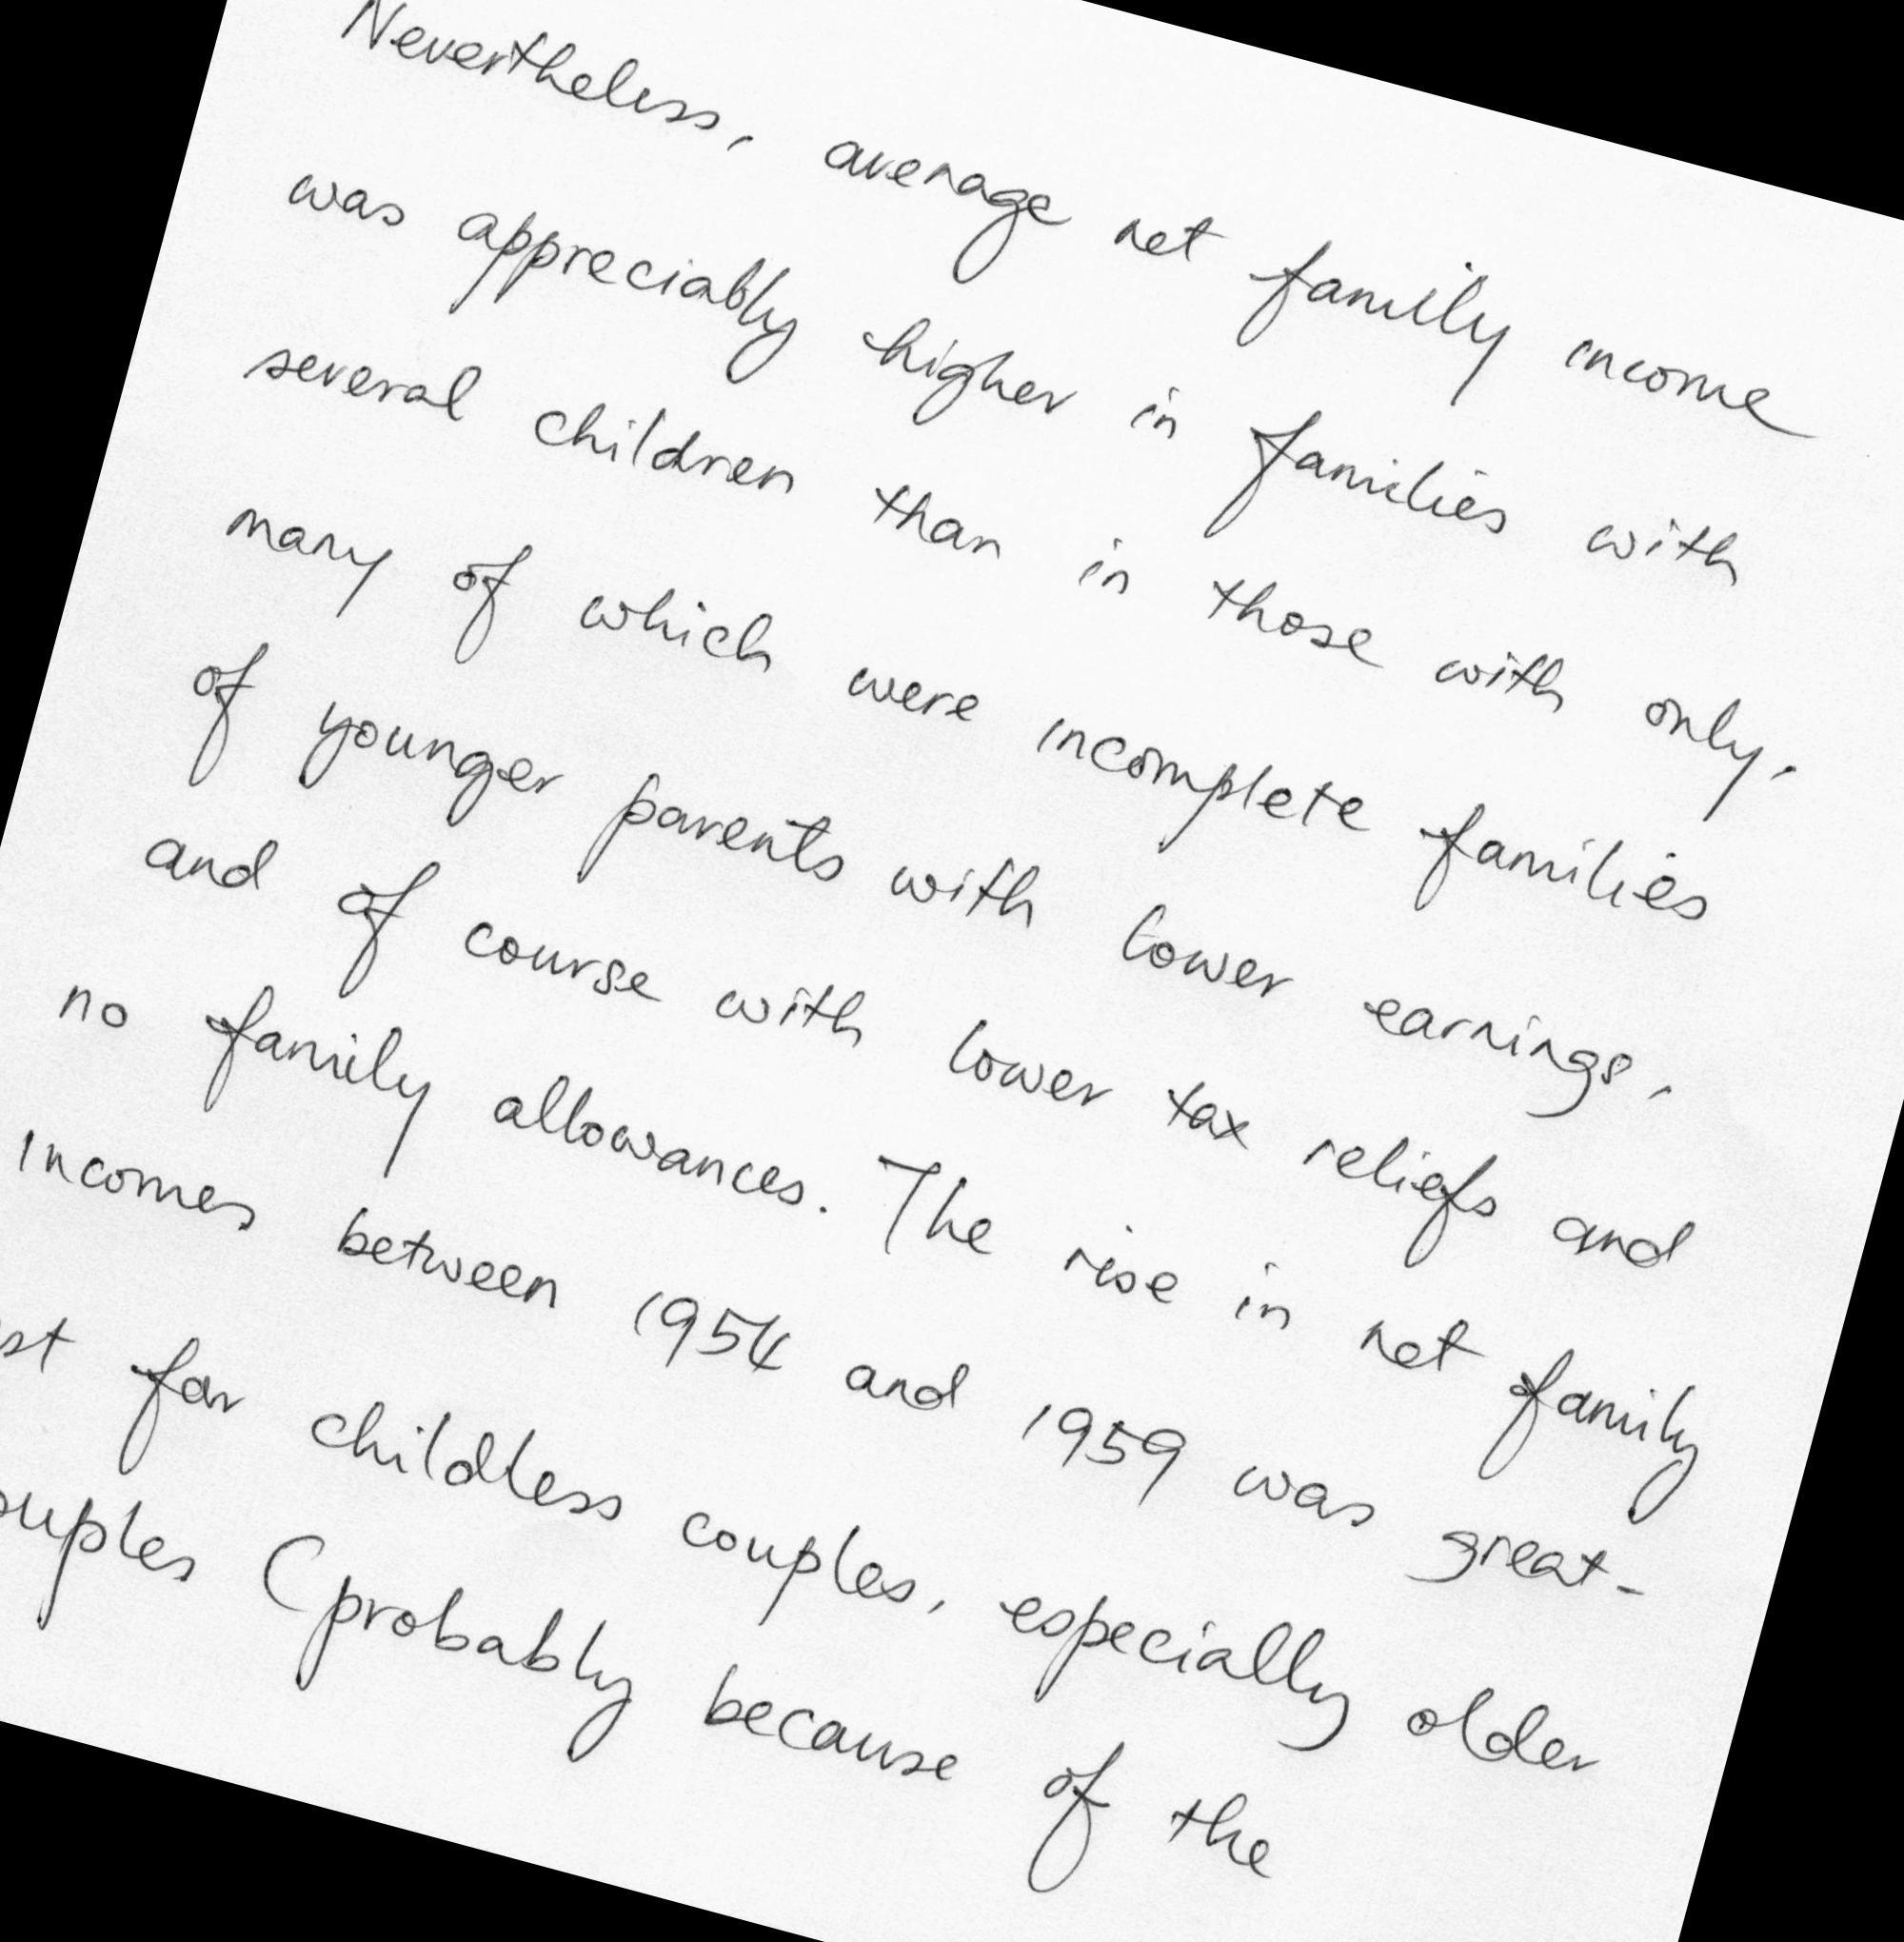 Nevertheless, average net family income
was appreciably higher in families with
several children than in those with only,
many of which were incomplete families
of younger parents with lower earnings,
and of course with lower tax reliefs and
no family allowances. The rise in net family
incomes between 1954 and 1959 was great-
st for childless couples, especially older
ouples (probably because of the